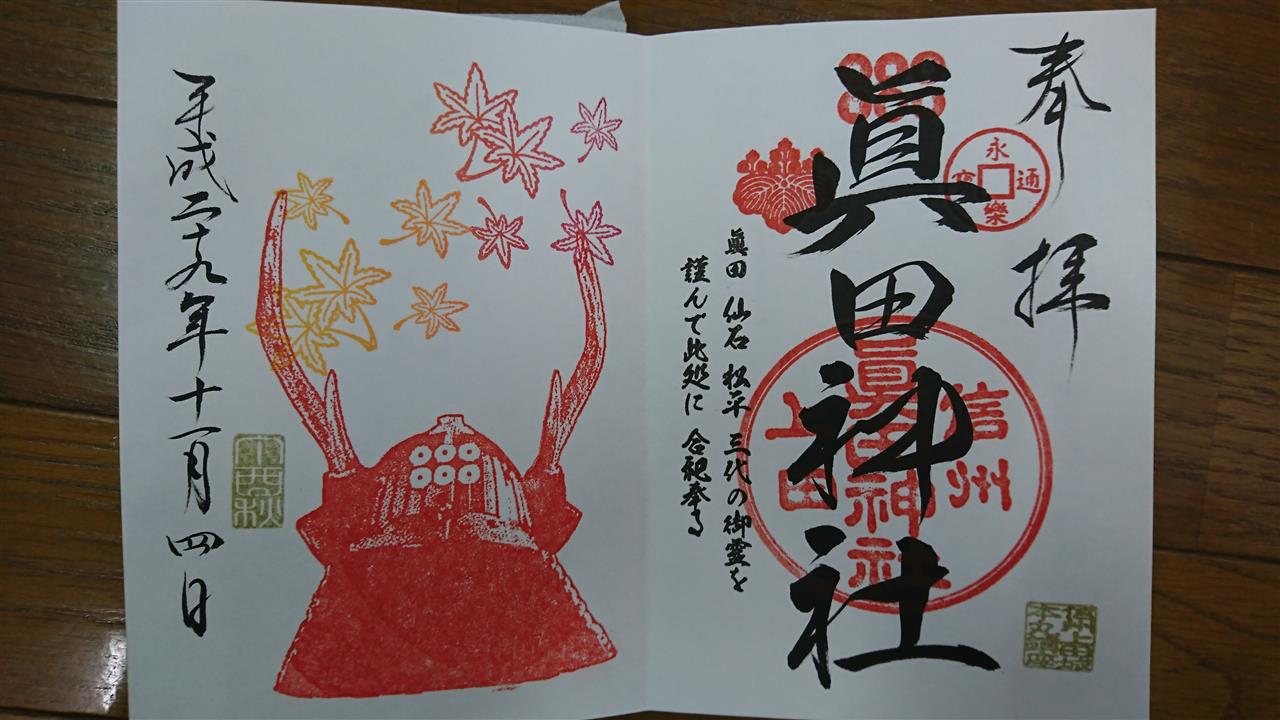 奉拝
永樂通寳
眞田神社
信州
眞田神社
上田
眞田 仙石 松平 三代の御霊を
謹んで此処に 合祀奉る
平成二十九年十一月四日